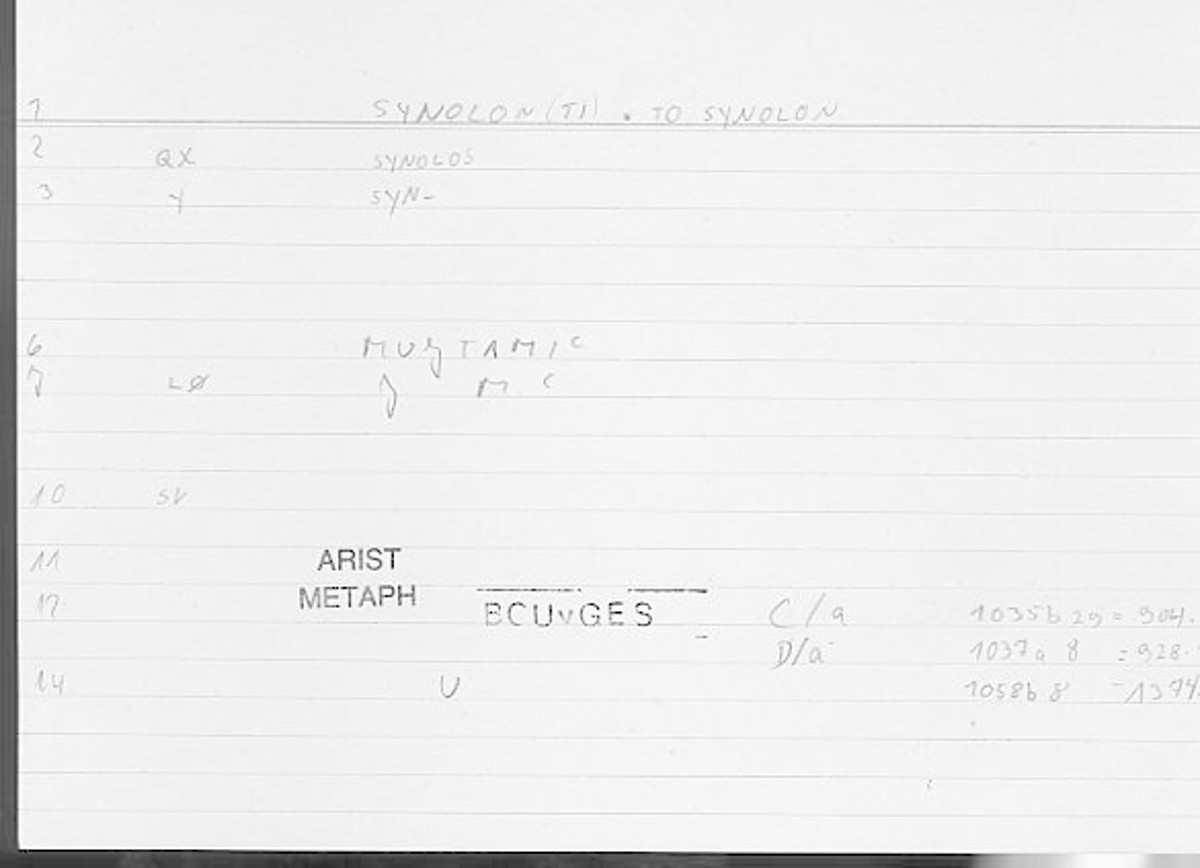 1 SYNOLON (TI) . TO SYNOLON
2 QX SYNOLOS
3 Y SYN-
6 MUǧTAMIC
7 LØ ǧ M C
10 SV
11 ARIST
12 METAPH BCUvGES C/a 1035b 29 = 904.
D/a 1037a 8 = 928.
14 U 1058b 8 - 1374